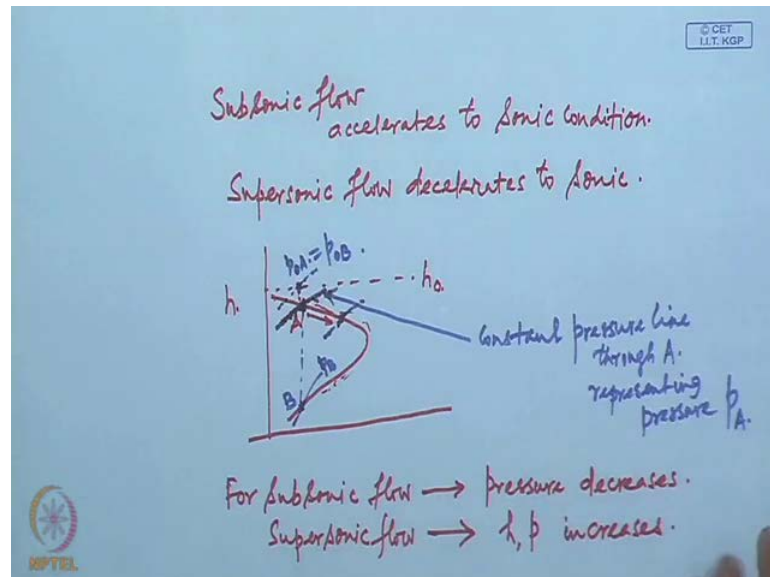 © CET
I.I.T. KGP
Subsonic flow
accelerates to Sonic condition.
Supersonic flow decelerates to Sonic.
p₀A = p₀B.
h.
h₀.
A
Constant pressure line
through A.
representing
pressure p_A.
p_B
B
For Subsonic flow → pressure decreases.
Supersonic flow → h, p increases.
NPTEL